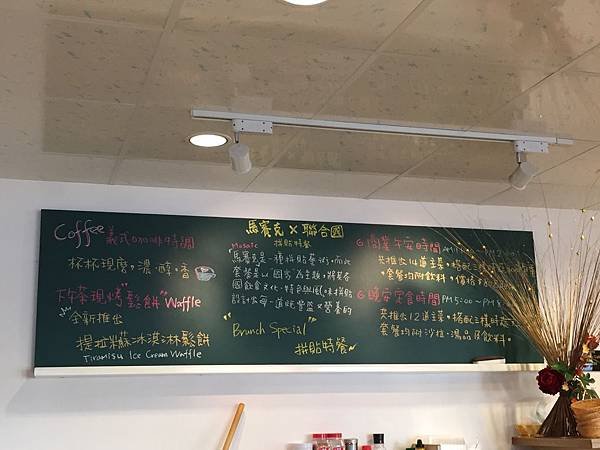 Coffee 義式咖啡特調
杯杯現磨,濃.醇.香
下午茶現烤"鬆餅"Waffle
全新推出
提拉米蘇冰淇淋鬆餅
Tiramisu Ice Cream Waffle
馬賽克×聯合國
Mosaic 拼貼特餐
馬賽克是一種拼貼藝術,而此
套餐是以國家為主題,將某各
國飲食文化.特色與風味拼貼
設計出每一道既豐盛又營養的
"Brunch Special"
拼貼特餐
商業午安時間
共推出14道主菜.搭配三
套餐均附飲料.價格
晚安定食時間 PM5:00~PM
共推出12道主菜.搭配三樣時蔬
套餐均附沙拉.湯品及飲料.